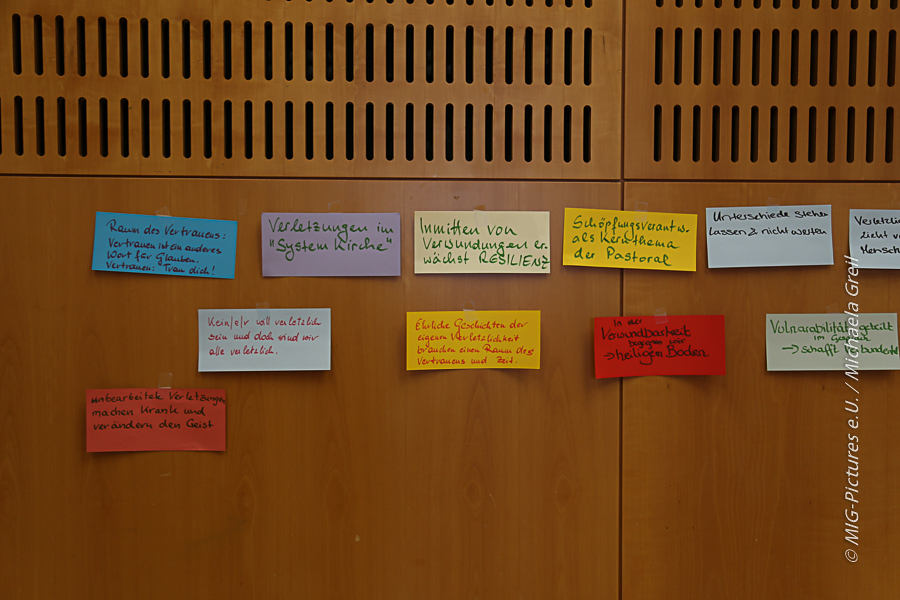 Raum des Vertrauens:
Vertrauen ist ein anderes
Wort für Glauben.
Vertrauen: Trau dich!
Verletzungen im
"System Kirche"
Inmitten von
Verwundungen er-
wächst RESILIENZ
Schöpfungsverantw.
als Kernthema
der Pastoral
Unterschiede stehen
lassen & nicht werten
Verletzlich
zieht v
Mensch
Kein/e/r will verletzlich
sein und doch sind wir
alle verletzlich.
Ehrliche Geschichten der
eigenen Verletzlichkeit
brauchen einen Raum des
Vertrauens und Zeit.
In der
Verwundbarkeit
begegnen wir
→ heiligen Boden
Vulnerabilität geteilt
im Gespräch
→ schafft
unbearbeitete Verletzungen
machen krank und
verändern den Geist
© MIG-Pictures e.U. / Michaela Greil